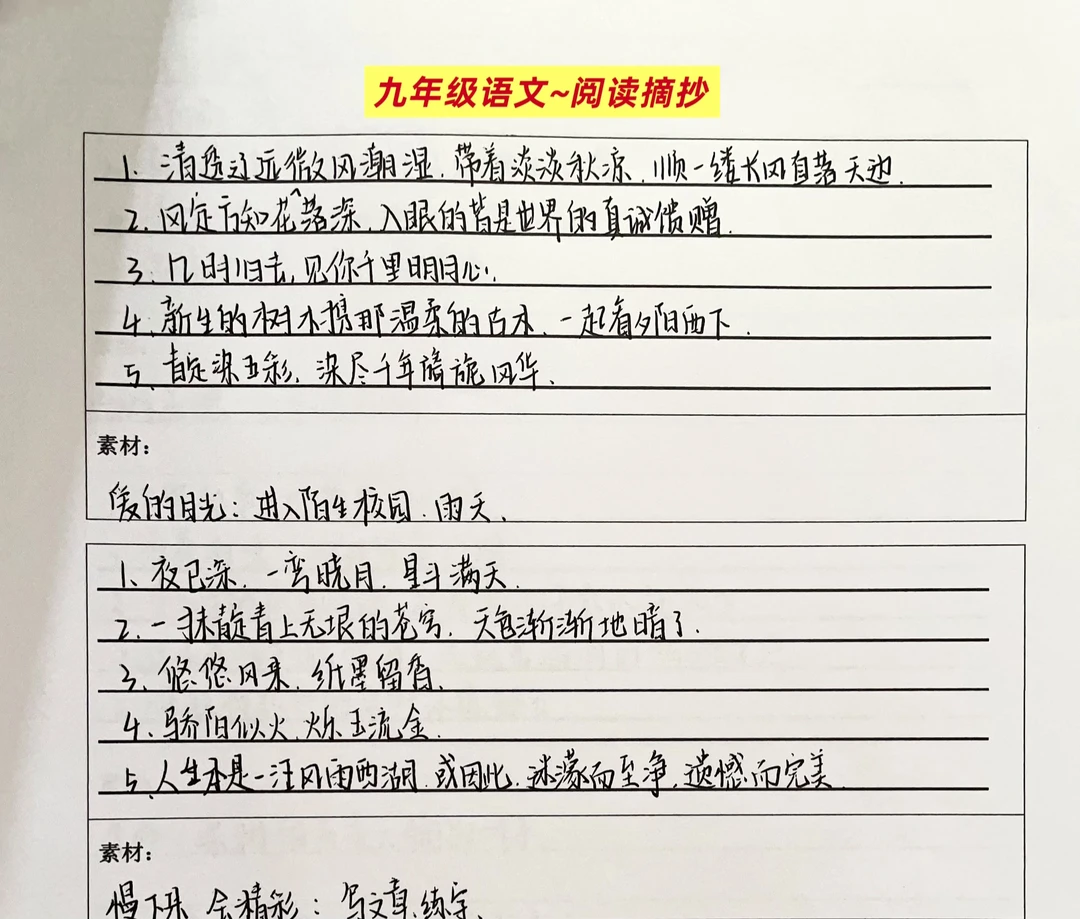 九年级语文~阅读摘抄
1. 清透辽远微风潮湿,带着淡淡秋凉,顺一缕长风自落天边.
2. 风定方知花落深,入眼的皆是世界的真诚馈赠.
3. 几时归去,见你千里明月心.
4. 新生的树木携那温柔的古木,一起看夕阳西下.
5. 靛染五彩,染尽千年旖旎风华.
素材:
爱的目光:进入陌生校园.雨天.
1. 夜已深,一弯晓月,星斗满天.
2. 一抹靛青上无垠的苍穹,天色渐渐地暗了.
3. 悠悠风来,纸墨留香.
4. 骄阳似火,烁玉流金.
5. 人生本是一汪风雨西湖,或因此,迷濛而至净,遗憾而完美.
素材:
慢下来 会精彩:写文章,练字.